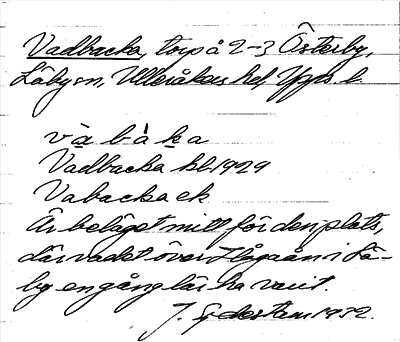 Vadbacka, torp å 2-3 Österby,
Läby sn, Ulleråkers hd, Upps. l.
v à b à k a
Vadbacka kbl 1929
Vabacka ek
Är beläget mitt för den plats,
där vadet över Hågaån i Lä-
by en gång lär ha varit.
J. 1932.